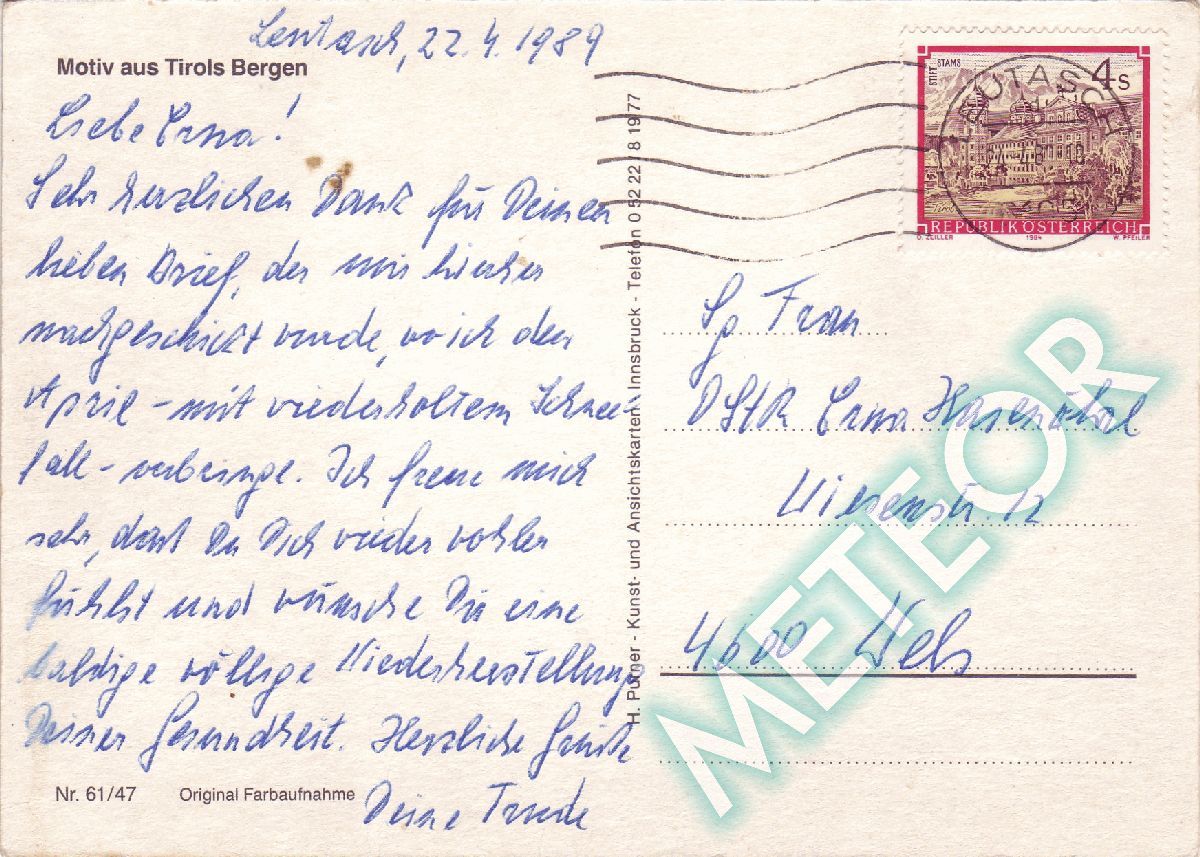 Leutasch, 22.4.1989
Motiv aus Tirols Bergen
Liebe Erna!
Sehr herzlichen Dank für Deinen
lieben Brief, der mir hierher
nachgeschickt wurde, wo ich den
April - mit wiederholtem Schnee-
fall - verbringe. Ich freue mich
sehr, dass Du Dich wieder wohler
fühlst und wünsche Dir eine
baldige völlige Wiederherstellung
Deiner Gesundheit. Herzliche Grüße
Deine Trude
Nr. 61/47 Original Farbaufnahme
H. Purner - Kunst- und Ansichtskarten - Innsbruck - Telefon 0 52 22 / 8 19 77
STIFT STAMS
4 S
REPUBLIK ÖSTERREICH
O. ZEILLER 1984 W. PFEILER
LEUTASCH
Sg Frau
OStR Erna Hasenöhrl
Wiesenstr. 12
4600 Wels
METEOR